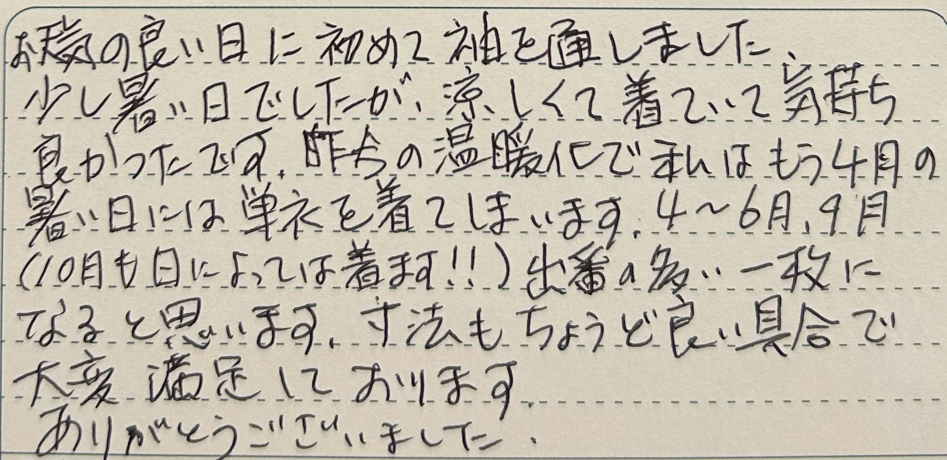 お天気の良い日に初めて袖を通しました、
少し暑い日でしたが、涼しくて着ていて気持ち
良かったです。昨今の温暖化で私はもう4月の
暑い日には単衣を着てしまいます。4〜6月、9月
(10月も日によっては着ます!!)出番の多い一枚に
なると思います。寸法もちょうど良い具合で
大変満足しております。
ありがとうございました。